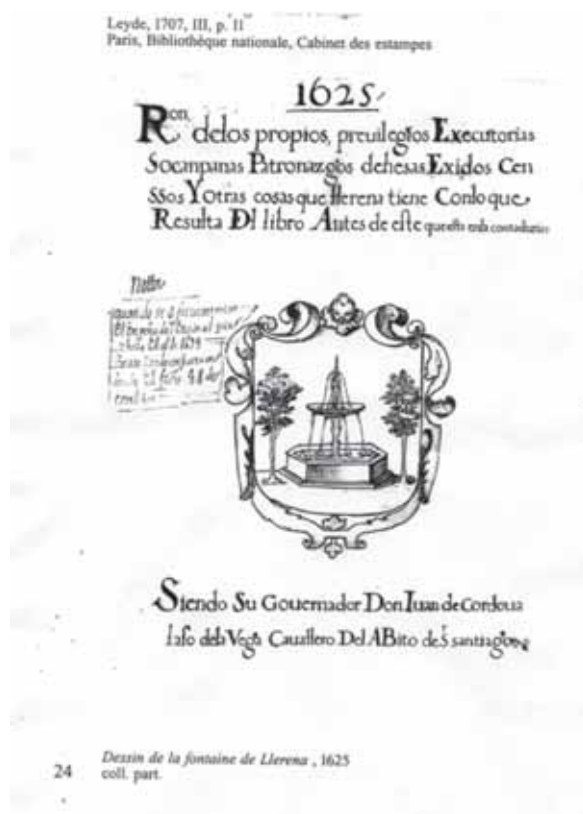 Leyde, 1707, III, p. 11
Paris, Bibliothèque nationale, Cabinet des estampes
1625
Ron. delos propios, preuilegios Executorias
Socampanas Patronazgos dehesas Exidos Cen
ssos Y otras cosas que llerena tiene Con lo que
Resulta Dl libro Antes de este que esta enla contaduria
Notta
Siendo Su Gouernador Don Iuan de Cordoua
laso dela Vega Cauallero Del ABito de S santiago
Dessin de la fontaine de Llerena , 1625
24 coll. part.